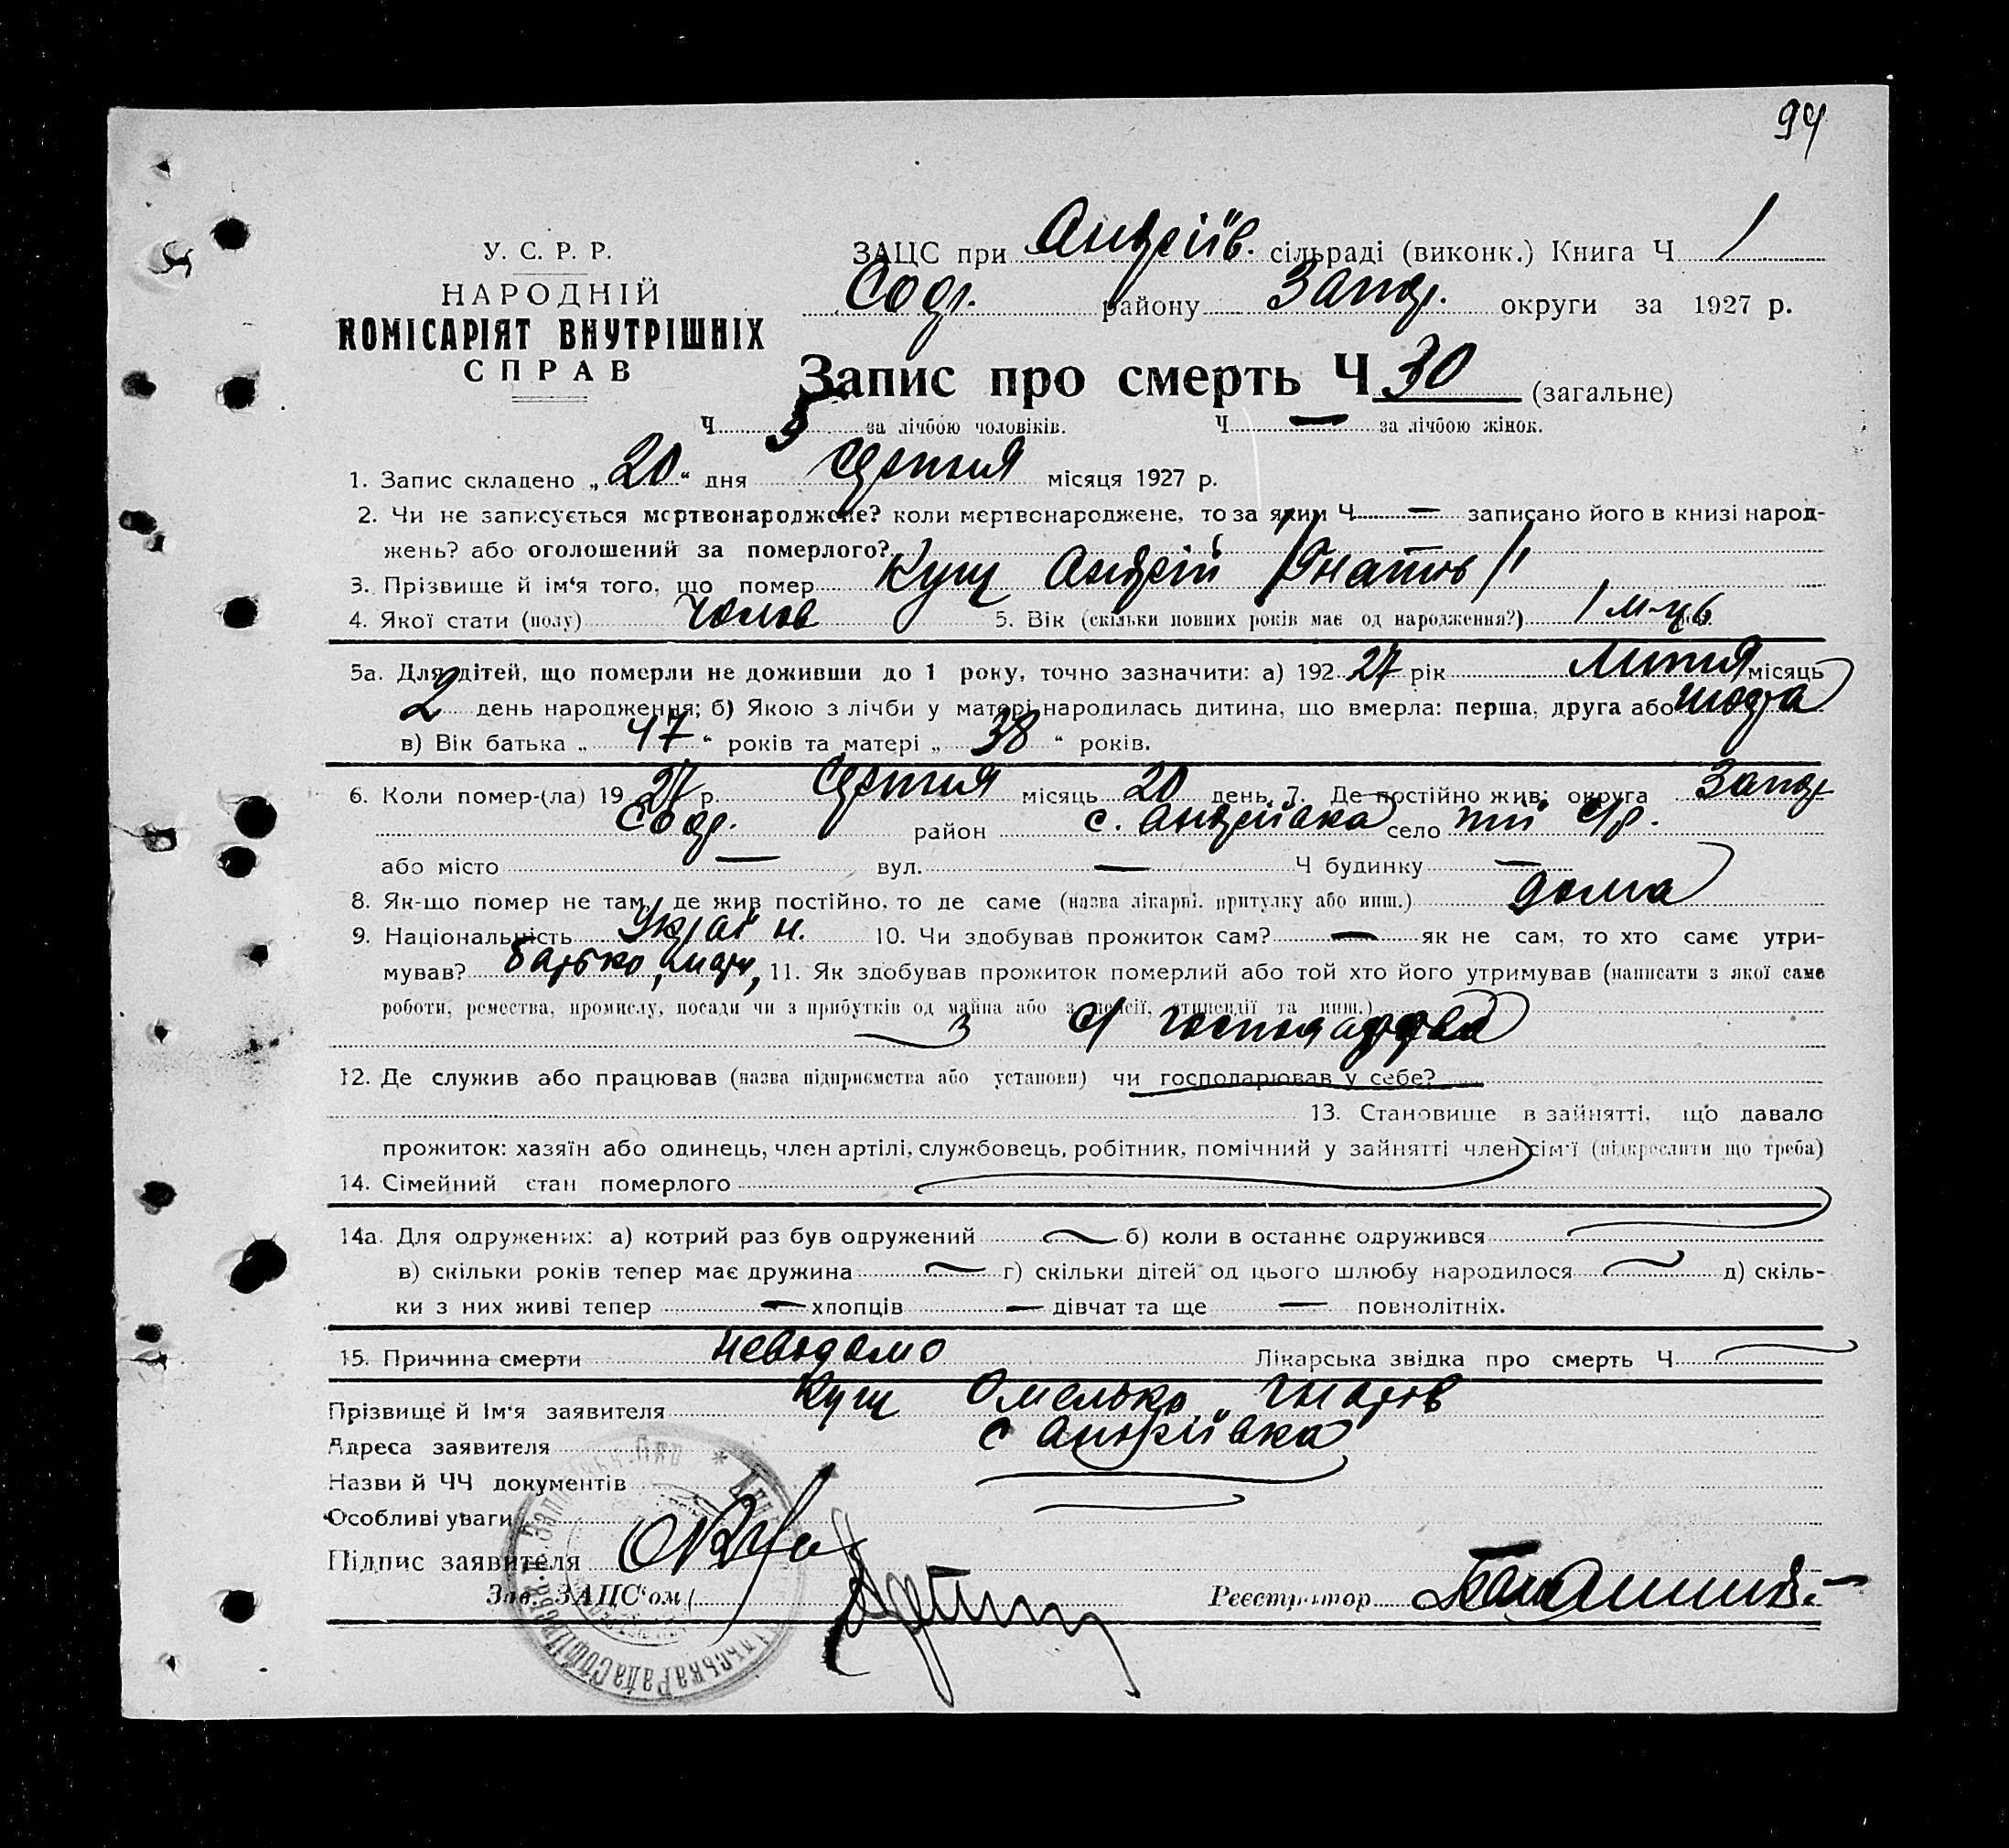 94
У. С. Р. Р.
НАРОДНІЙ
КОМІСАРІЯТ ВНУТРІШНІХ
СПРАВ
ЗАЦС при Андріїв. сільраді (виконк.) Книга Ч 1
Соф. району Запор. округи за 1927 р.
Запис про смерть Ч 30 (загальне)
Ч за лічбою чоловіків. Ч — за лічбою жінок.
1. Запис складено „20“ дня серпня місяця 1927 р.
2. Чи не записується мертвонароджене? коли мертвонароджене, то за яким Ч — записано його в книзі народ-
жень? або оголошений за померлого?
3. Прізвище й ім'я того, що помер Кущ Андрій /Гнатів/
4. Якої стати (полу) Чолов 5. Вік (скільки повних років має од народження?) 1 м-ць
5а. Для дітей, що померли не доживши до 1 року, точно зазначити: а) 192 27 рік Липня місяць
2 день народження; б) Якою з лічби у матері народилась дитина, що вмерла: перша, друга або шоста
в) Вік батька „47“ років та матері „38“ років.
6. Коли помер-(ла) 1927 р. Серпня місяць 20 день. 7. Де постійно жив: округа Запор
Соф. район с. Андріївка село тії с/р.
або місто — вул. — Ч будинку —
8. Як-що помер не там, де жив постійно, то де саме (назва лікарні, притулку або инш.) дома
9. Національність Украін. 10. Чи здобував прожиток сам? — як не сам, то хто саме утри-
мував? батько, мати, 11. Як здобував прожиток померлий або той хто його утримував (написати з якої саме
роботи, ремества, промислу, посади чи з прибутків од майна або з пенсії, стипендії та инш.)
з с/господарства
12. Де служив або працював (назва підприємства або установи) чи господарював у себе?
13. Становище в зайнятті, що давало
прожиток: хазяїн або одинець, член артілі, службовець, робітник, помічний у зайнятті член сім'ї (підкреслити що треба)
14. Сімейний стан померлого
14а. Для одружених: а) котрий раз був одружений б) коли в останнє одружився
в) скільки років тепер має дружина г) скільки дітей од цього шлюбу народилося д) скіль-
ки з них живі тепер — хлопців — дівчат та ще — повнолітніх.
15. Причина смерти невідомо Лікарська звідка про смерть Ч
Прізвище й ім'я заявителя Кущ Омелько Гнатів
Адреса заявителя с Андріївка
Назви й ЧЧ документів
Особливі уваги
Підпис заявителя
Зав. ЗАЦС'ом Реєстратор